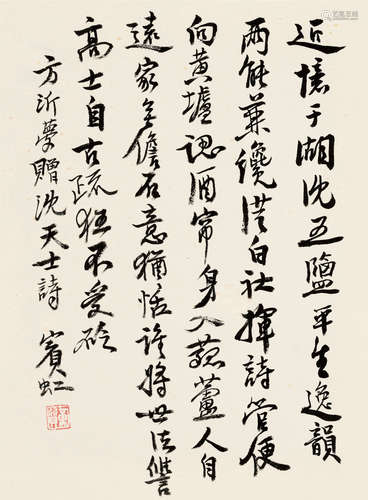 近憶于湖沈五鹽平生逸韻
两能兼纔從白社揮詩管便
向黄壚認酒帘身入菰蘆人自
遠家無儋石意猶恬誰將世法讐
高士自古疏狂不受砭
方沂夢贈沈天士詩 賓虹